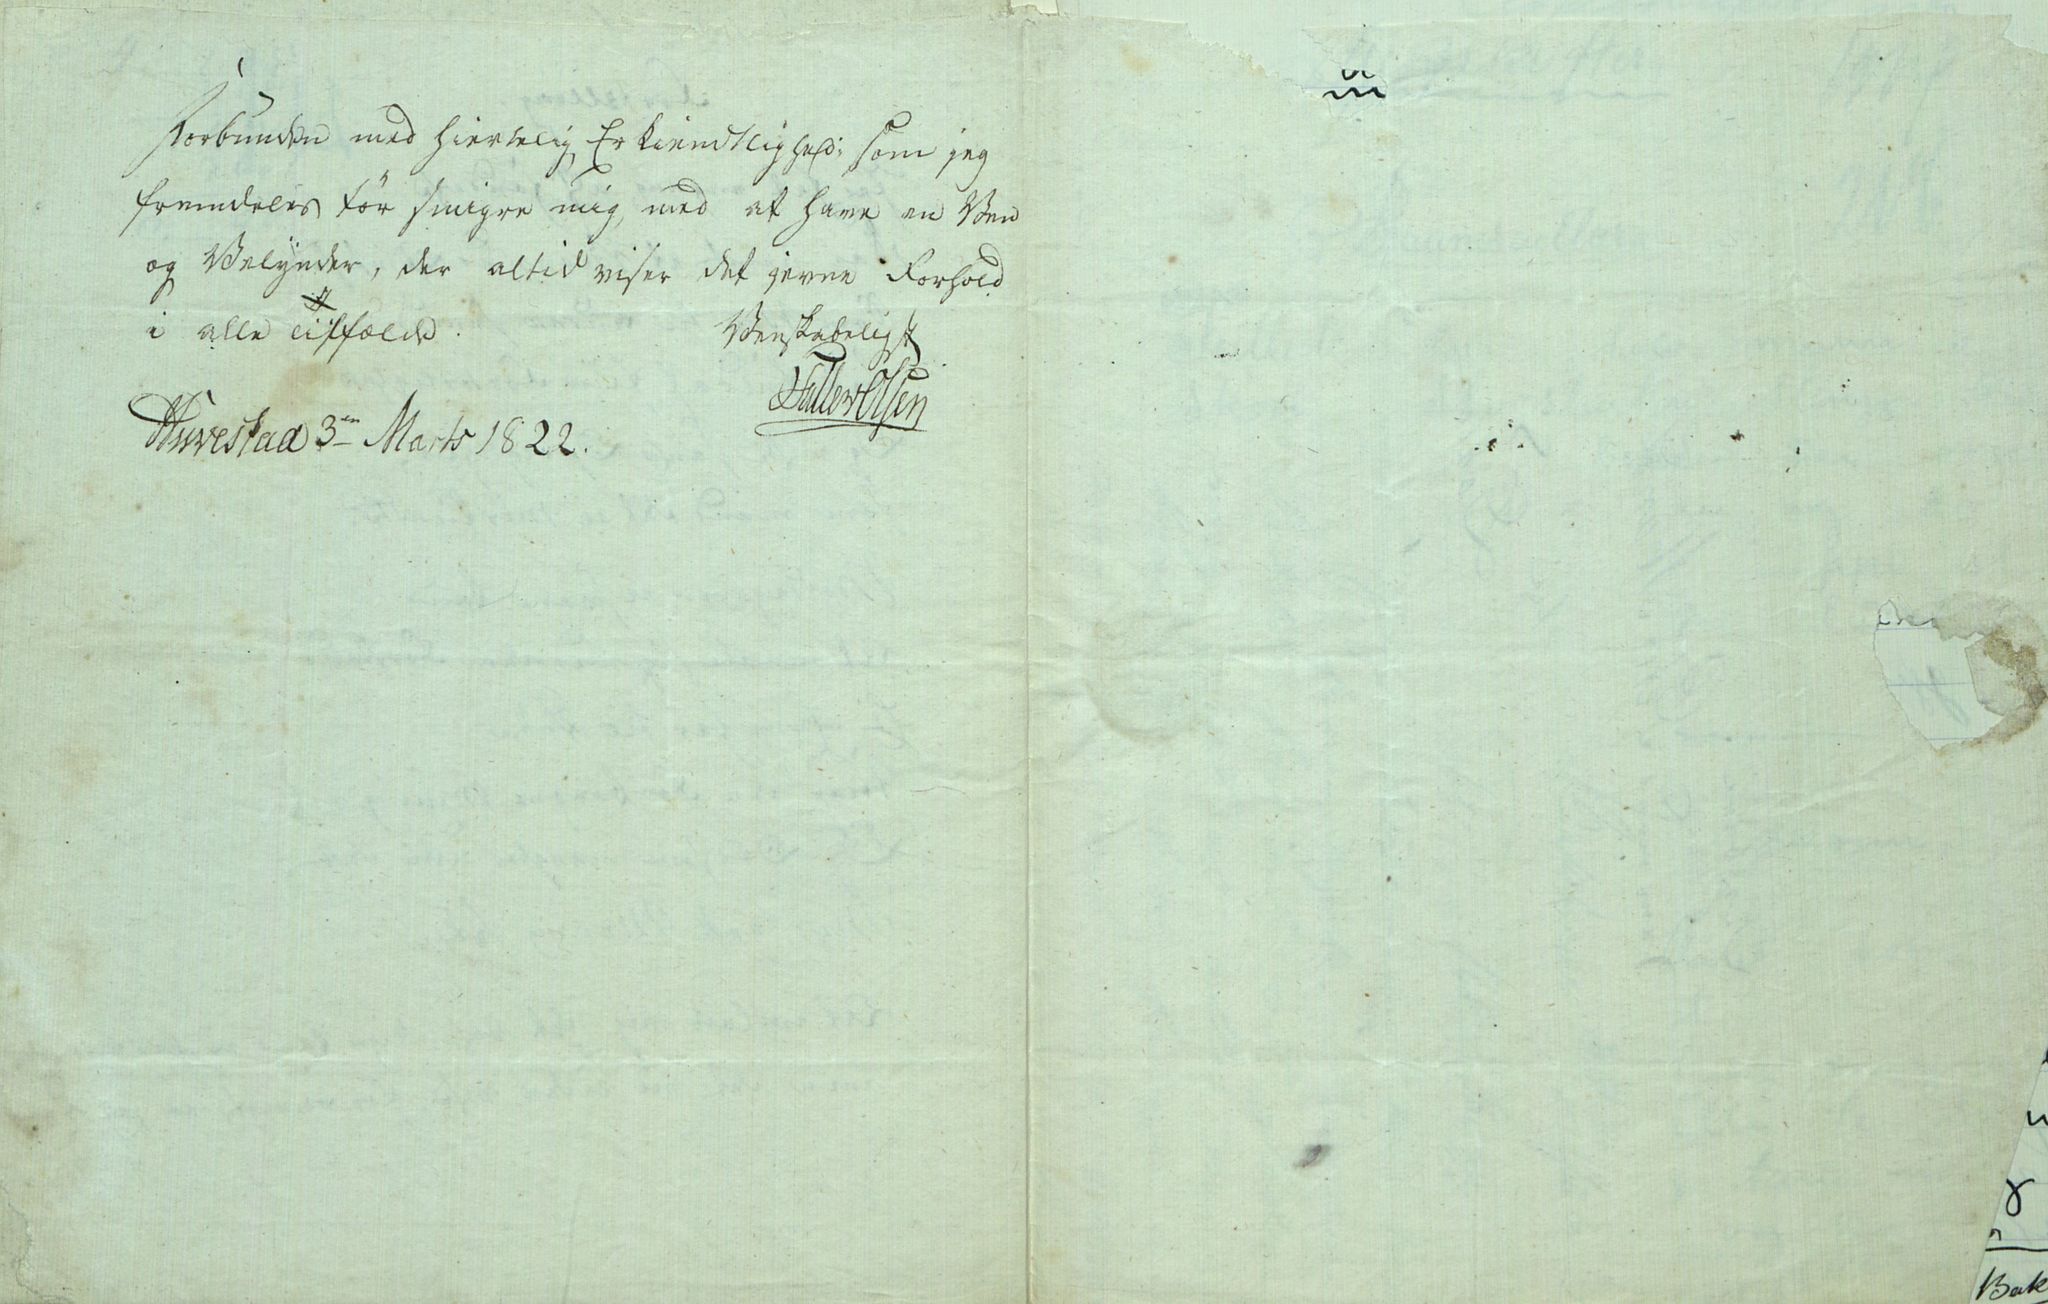 Forbunden med hiertelig Erkiendtlighed; som jeg
fremdeles tör smigre mig, med at have en Ven
og Velÿnder, der altid viser det jevne Forhold
i alle tilfælde. Venskabeligst
Tallev Olsen
Huvestad 3en Marts 1822.